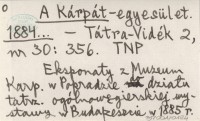 A Kárpát-egyesület.
1884... — Tátra-Vidék 2,
nr 30: 356. TNP
Eksponaty z Muzeum
Karp. w Popradzie działu
tatrz. ogólnowęgierskiej wy-
stawy w Budapeszcie w 1885 r.